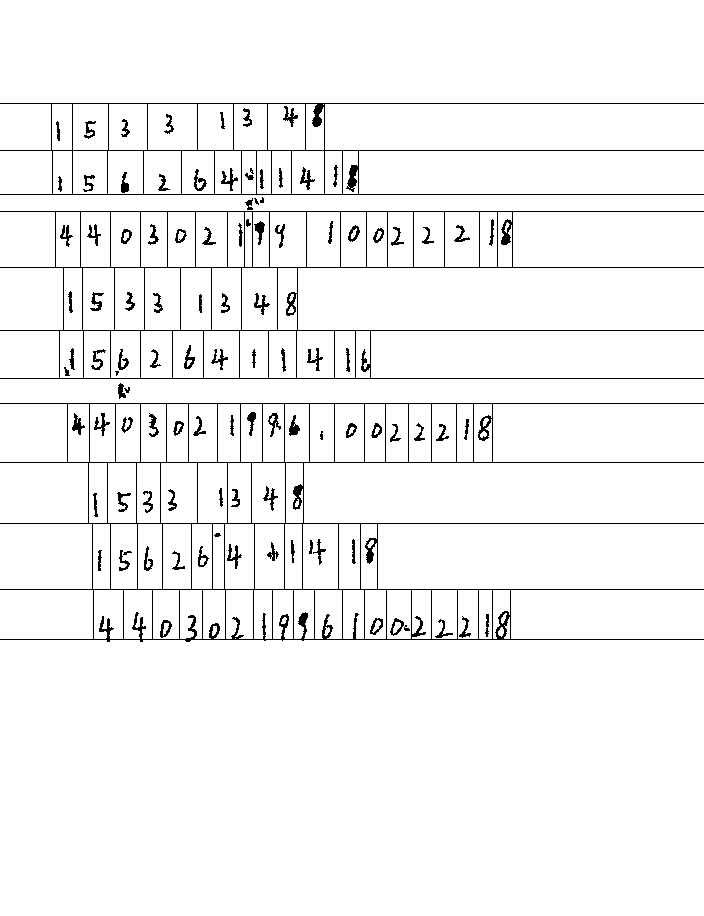 15331348
15626411418
44030219910022218
15331348
15626411416
4403021996.0022218
15331348
1562641418
440302199610022218